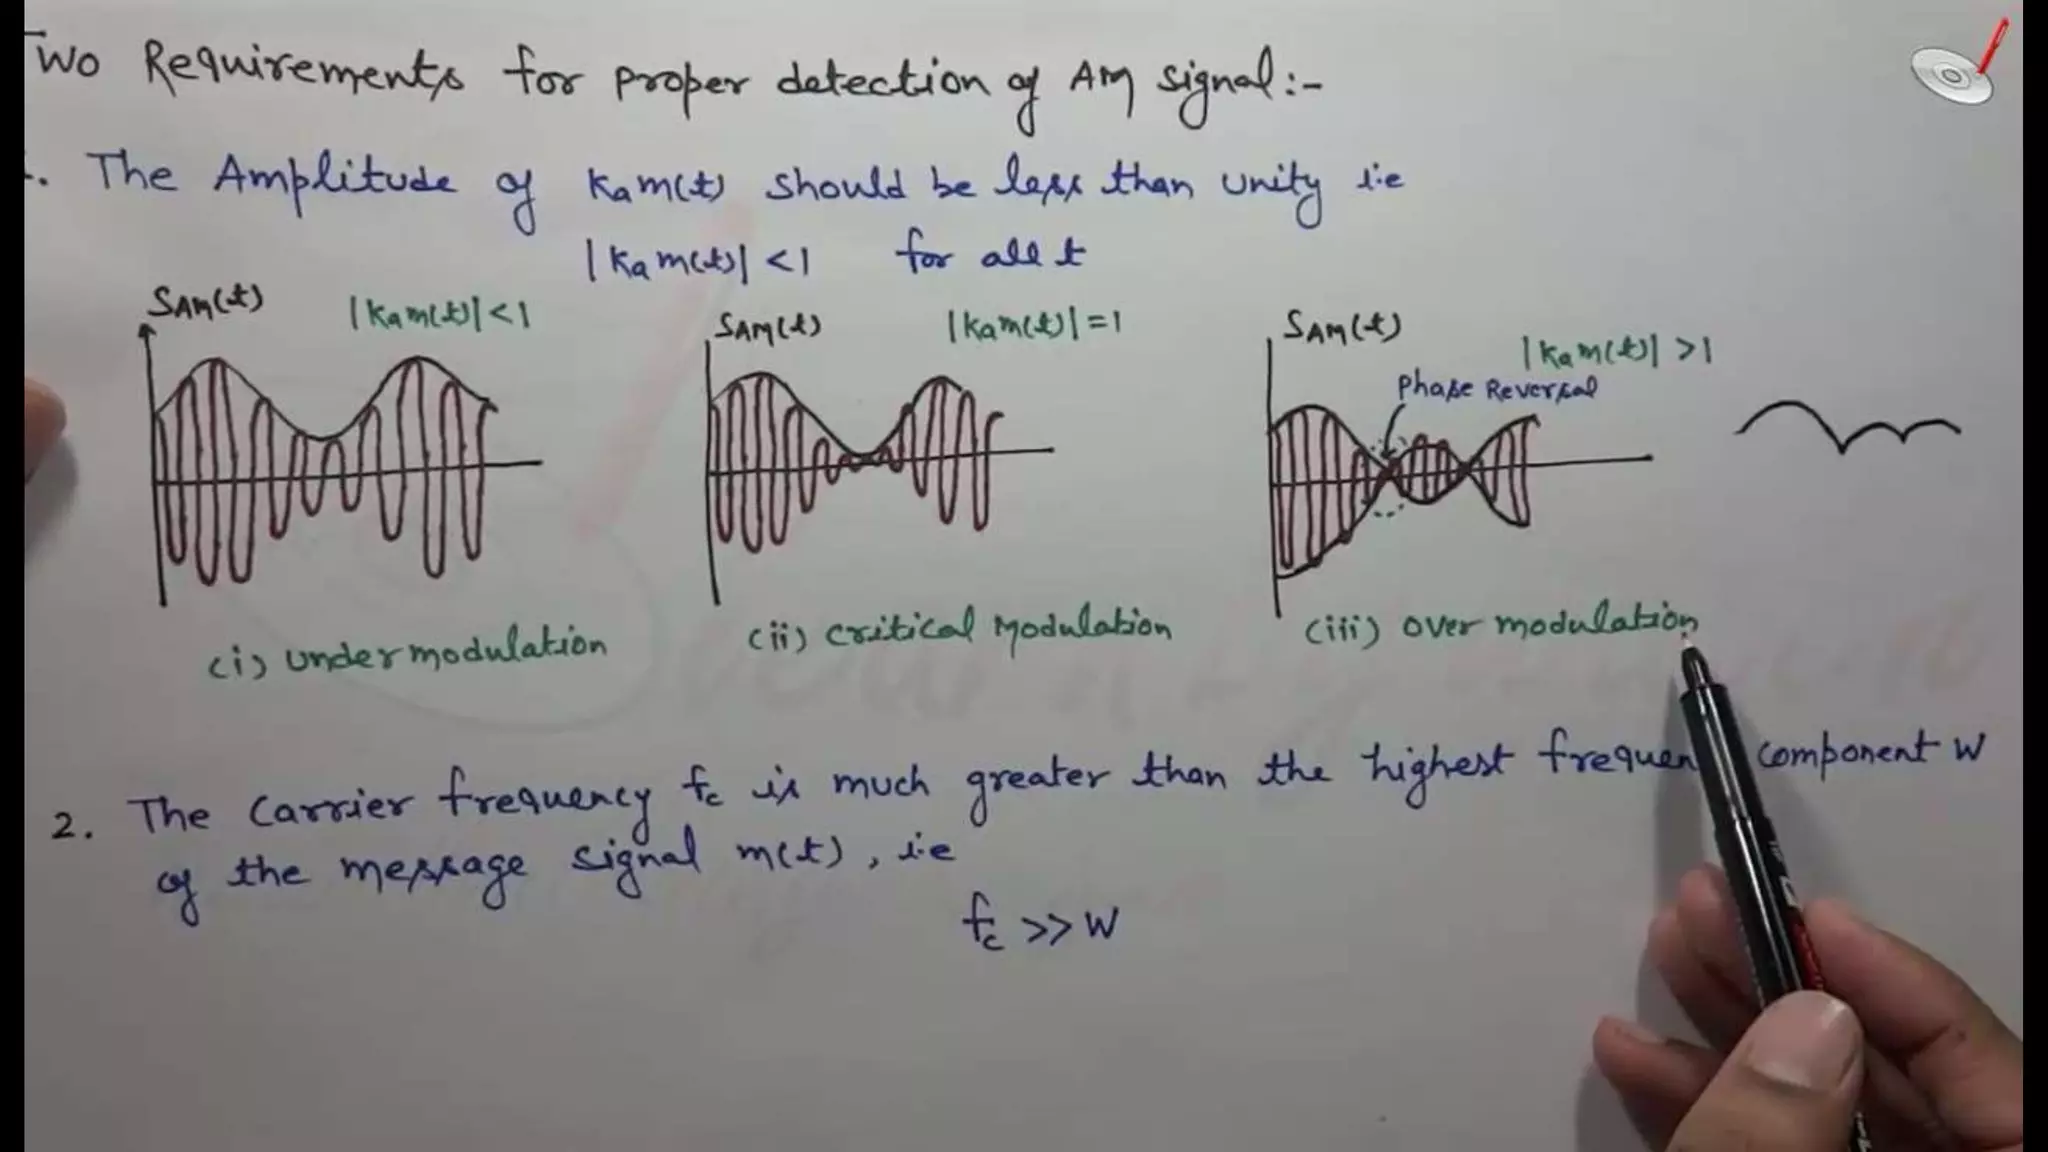 Two Requirements for proper detection of AM signal:-
. The Amplitude of kam(t) should be less than unity i.e
|kam(t)| <1 for all t
SAM(t) |kam(t)|<1
SAM(t) |kam(t)|=1
SAM(t) |kam(t)| >1
Phase Reversal
(i) undermodulation
(ii) critical Modulation
(iii) over modulation
2. The carrier frequency fc is much greater than the highest frequen component W
of the message signal m(t), i.e
fc >> W